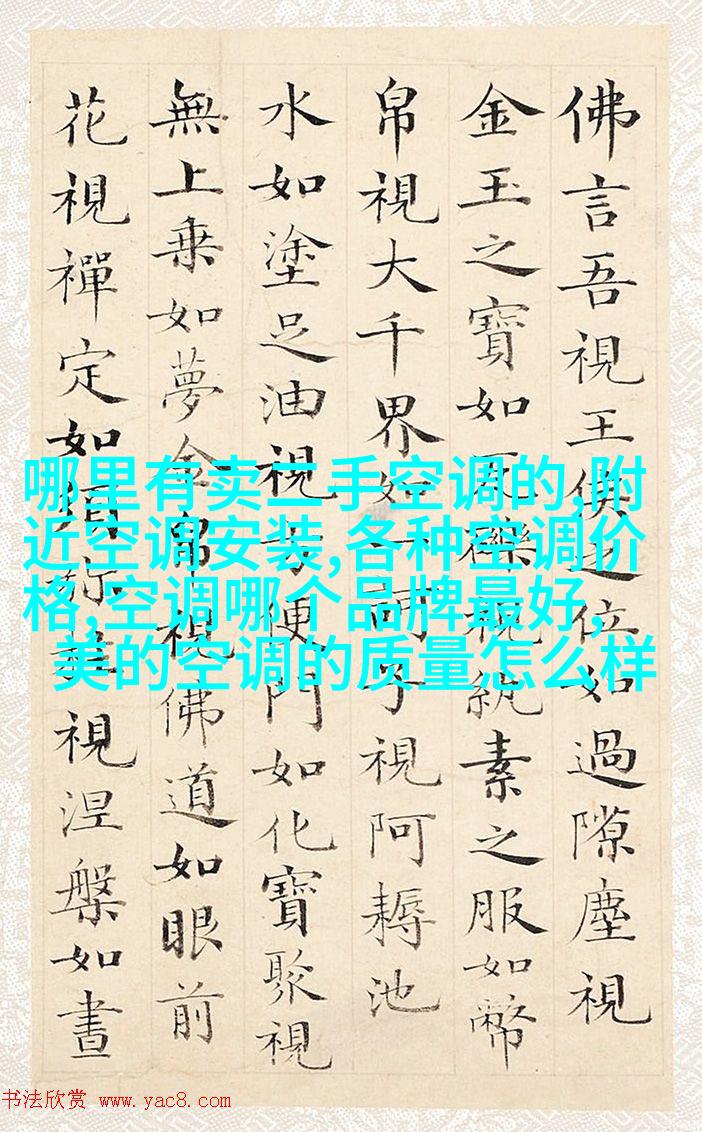 佛言吾視王侯之位如過隙塵視
金玉之寶如瓦礫視紈素之服如幣
帛視大千界如一訶子視阿耨池
水如塗足油視方便門如化寶聚視
無上乗如夢金帛視佛道如眼前
花視禪定如須弥柱視涅槃如晝
哪里有卖二手空调的,附
近空调安装,各种空调价
格,空调哪个品牌最好,
美的空调的质量怎么样
书法欣赏 www.yac8.com